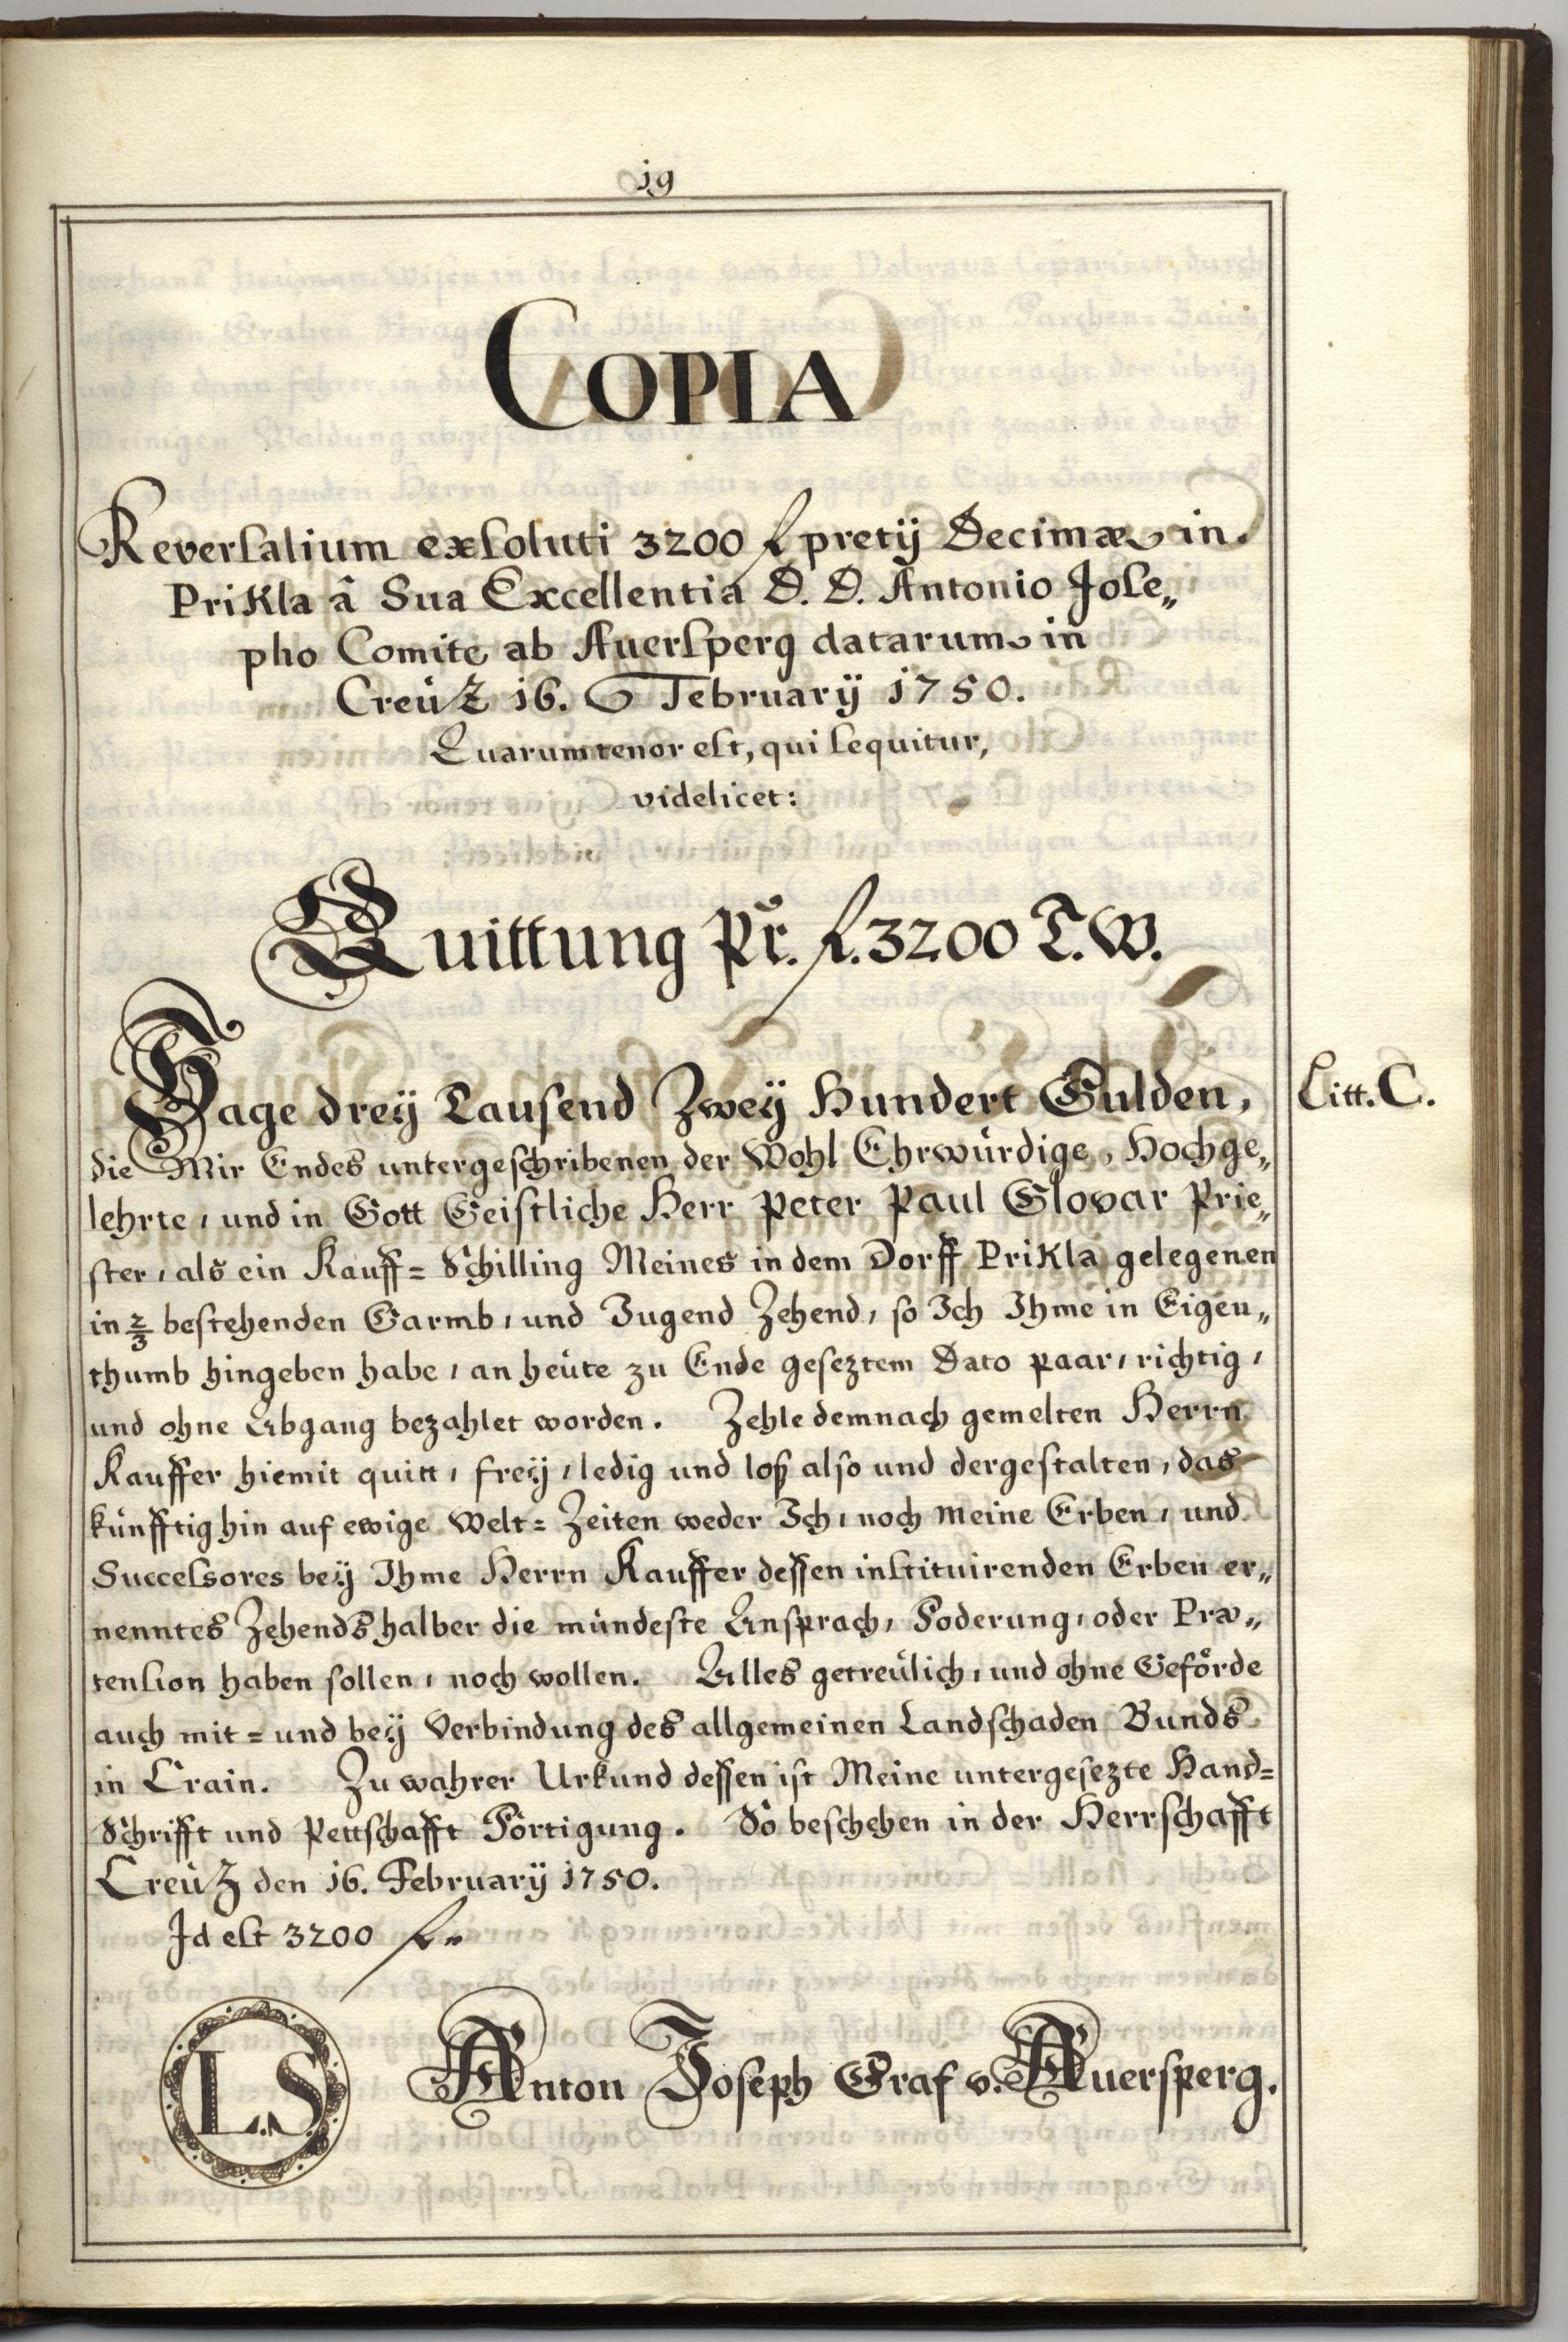 19
COPIA
Reversalium exsoluti 3200 f pretÿ Decimæ in
Prikla â Sua Excellentia D. D. Antonio Jose„
pho Comite ab Auersperg datarum in
Creüz 16. Februarÿ 1750.
Quarum tenor est, qui sequitur,
videlicet:
Quittung pr. f. 3200 T. W.
Sage dreÿ Tausend Zweÿ Hundert Gulden,
Litt. C.
die Mir Endes untergeschribenen der Wohl Ehrwürdige, Hochge„
lehrte, und in Gott Geistliche Herr Peter Paul Glovar Prie„
ster, als ein Kauff= Schilling Meines in dem Dorff Prikla gelegenen
in 2/3 bestehenden Garmb, und Jugend Zehend, so Ich Ihme in Eigen„
thumb hingeben habe, an heüte zu Ende geseztem Dato paar, richtig,
und ohne Abgang bezahlet worden. Zehle demnach gemelten Herrn
Kauffer hiemit quitt, freÿ, ledig und loß also und dergestalten, das
künfftig hin auf ewige Welt= Zeiten weder Ich, noch meine Erben, und
Successores beÿ Ihme Herrn Kauffer dessen instituirenden Erben er„
nenntes Zehends halber die mündeste Ansprach, Foderung, oder Præ„
tension haben sollen, noch wollen. Alles getreülich, und ohne Geförde
auch mit= und beÿ Verbindung des allgemeinen Landschaden Bunds
in Crain. Zu wahrer Urkund dessen ist Meine untergesezte Hand=
Schrifft und Pettschafft Förtigung. So beschehen in der Herrschafft
Creüz den 16. Februarÿ 1750.
Id est 3200 f„
L.S Anton Joseph Graf v. Auersperg.